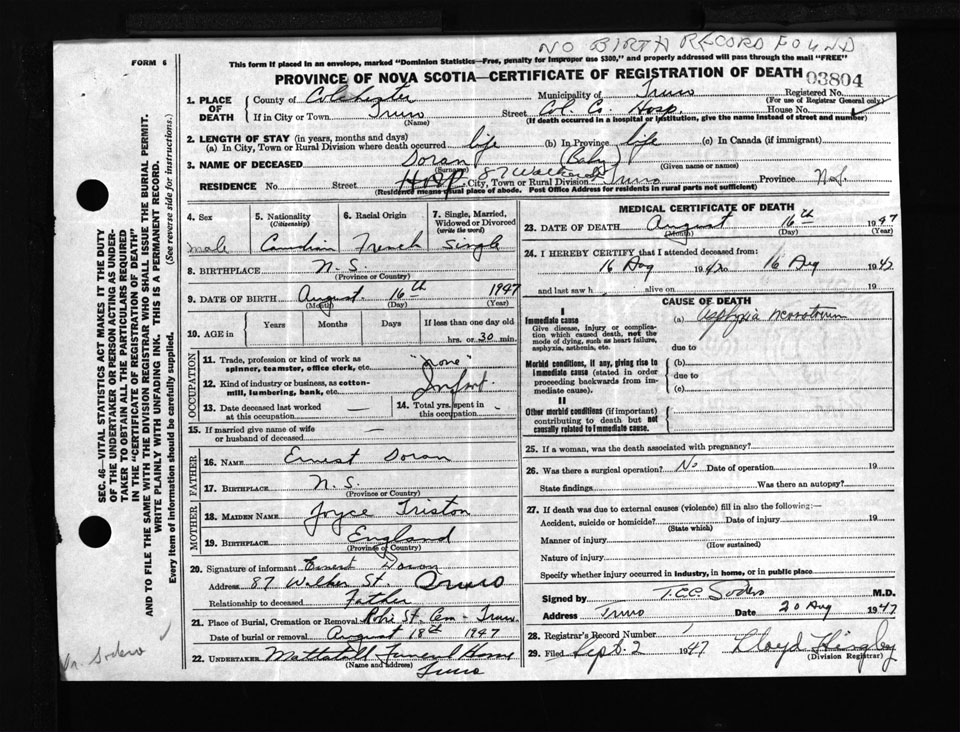 NO BIRTH RECORD FOUND
FORM 6
This form if placed in an envelope, marked "Dominion Statistics—Free, penalty for improper use $300," and properly addressed will pass through the mail "FREE"
PROVINCE OF NOVA SCOTIA—CERTIFICATE OF REGISTRATION OF DEATH 03804
1. PLACE OF DEATH
County of Colchester Municipality of Truro Registered No.
(For use of Registrar General only)
If in City or Town Truro Street Col. Co. Hosp. House No.
(Name) (If death occurred in a hospital or institution, give the name instead of street and number)
2. LENGTH OF STAY (in years, months and days)
(a) In City, Town or Rural Division where death occurred life (b) In Province life (c) In Canada (if immigrant)
3. NAME OF DECEASED Doran (Baby)
(Surname) (Given name or names)
RESIDENCE No. Street Hosp. 87 Walker St City, Town or Rural Division Truro Province N.S.
(Residence means usual place of abode. Post Office Address for residents in rural parts not sufficient)
4. Sex
male
5. Nationality
(Citizenship)
Canadian
6. Racial Origin
French
7. Single, Married, Widowed or Divorced
(write the word)
Single
8. BIRTHPLACE N.S.
(Province or Country)
9. DATE OF BIRTH August 16th 1947
(Month) (Day) (Year)
10. AGE in Years Months Days If less than one day old
hrs. or 30 min.
OCCUPATION
11. Trade, profession or kind of work as spinner, teamster, office clerk, etc. "none"
12. Kind of industry or business, as cotton-mill, lumbering, bank, etc. Infant.
13. Date deceased last worked at this occupation —
14. Total yrs. spent in this occupation —
15. If married give name of wife or husband of deceased —
FATHER
16. NAME Ernest Doran
17. BIRTHPLACE N.S.
(Province or Country)
MOTHER
18. MAIDEN NAME Joyce Triston
19. BIRTHPLACE England
(Province or Country)
20. Signature of informant Ernest Doran
Address 87 Walker St. Truro
Relationship to deceased Father
21. Place of Burial, Cremation or Removal Robie St. Cem - Truro
Date of burial or removal August 18th 1947
22. UNDERTAKER Mattatall Funeral Home
(Name and address) Truro
MEDICAL CERTIFICATE OF DEATH
23. DATE OF DEATH August 16th 1947
(Month) (Day) (Year)
24. I HEREBY CERTIFY that I attended deceased from:
16 Aug 1947 to 16 Aug 1947
and last saw h alive on 19
CAUSE OF DEATH
I
Immediate cause
Give disease, injury or complication which caused death, not the mode of dying, such as heart failure, asphyxia, asthenia, etc.
(a) Asphyxia Neonatorum
due to
Morbid conditions, if any, giving rise to immediate cause (stated in order proceeding backwards from immediate cause).
(b)
due to
(c)
II
Other morbid conditions (if important) contributing to death but not causally related to immediate cause.
25. If a woman, was the death associated with pregnancy?
26. Was there a surgical operation? No Date of operation 19
State findings Was there an autopsy?
27. If death was due to external causes (violence) fill in also the following:—
Accident, suicide or homicide? Date of injury 19
(State which)
Manner of injury
(How sustained)
Nature of injury
Specify whether injury occurred in industry, in home, or in public place
Signed by T.C.C. Sodero M.D.
Address Truro Date 20 Aug 1947
28. Registrar's Record Number
29. Filed Sept. 2 1947 Lloyd
(Division Registrar)
SEC. 46—VITAL STATISTICS ACT MAKES IT THE DUTY
OF THE UNDERTAKER OR PERSON ACTING AS UNDER-
TAKER TO OBTAIN ALL THE PARTICULARS REQUIRED
IN THE "CERTIFICATE OF REGISTRATION OF DEATH"
AND TO FILE THE SAME WITH THE DIVISION REGISTRAR WHO SHALL ISSUE THE BURIAL PERMIT.
WRITE PLAINLY WITH UNFADING INK. THIS IS A PERMANENT RECORD.
Every item of information should be carefully supplied. (See reverse side for instructions.)
Dr. Sodero